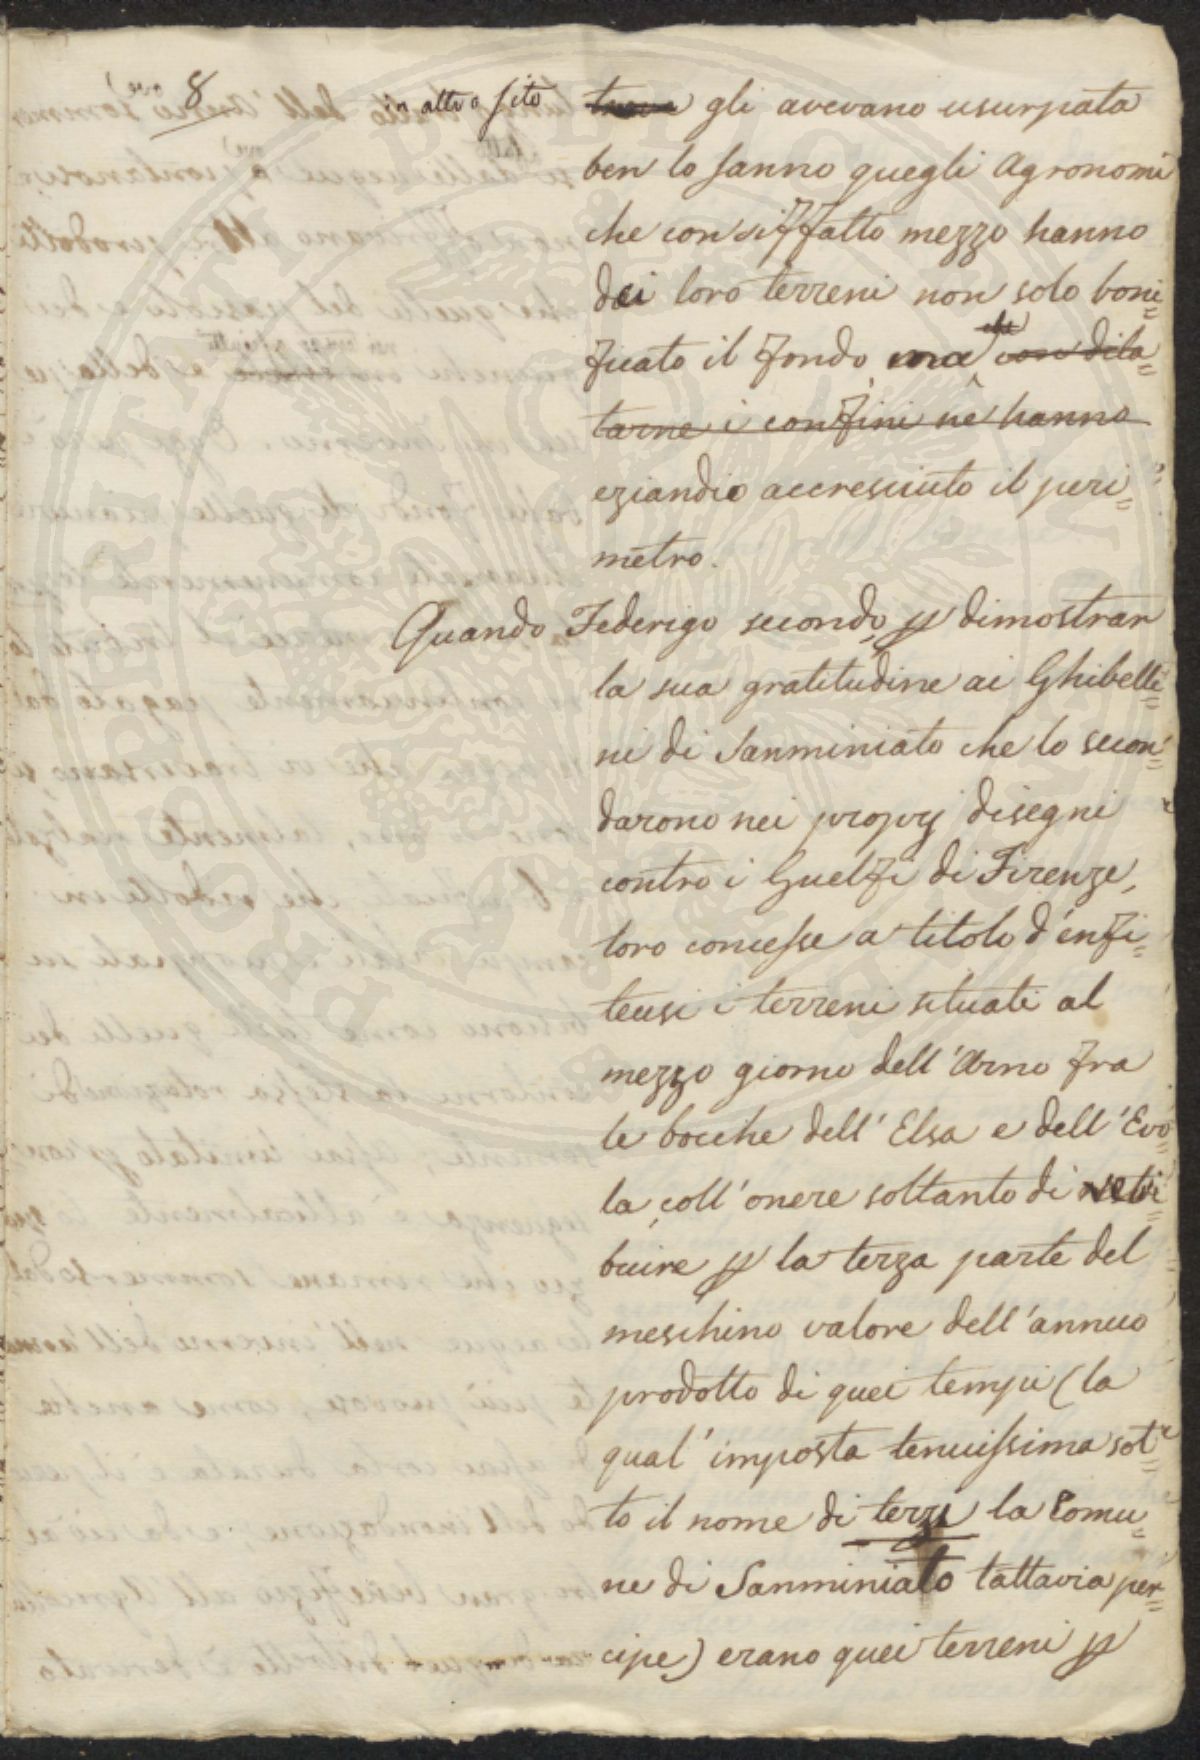 8
in altro sito
trove gli avevano usurpata
ben lo sanno quegli Agronomi
che con siffatto mezzo hanno
dei loro terreni non solo boni=
ficato il fondo, ma che con dila=
tarne i confini ne hanno
eziandio accresciuto il peri=
metro.
Quando Federigo secondo, p dimostrar
la sua gratitudine ai Ghibelli=
ni di Sanminiato che lo secon=
darono nei proprj disegni
contro i Guelfi di Firenze,
loro concesse a titolo d'enfi=
teusi i terreni situati al
mezzo giorno dell'Arno fra
le bocche dell'Elsa e dell'Evo=
la, coll'onere soltanto di retri=
buire p la terza parte del
meschino valore dell'annuo
prodotto di quei tempi (la
qual'imposta tenuissima sot=
to il nome di terzi la Comu=
ne di Sanminiato tattavia per=
cipe) erano quei terreni p